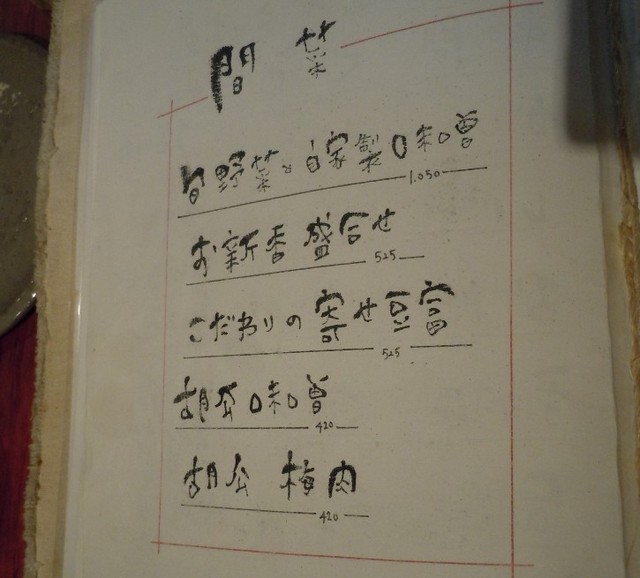 間菜
旬野菜と自家製味噌
1.050
お新香盛合せ
525
こだわりの寄せ豆富
525
胡瓜味噌
420
胡瓜 梅肉
420